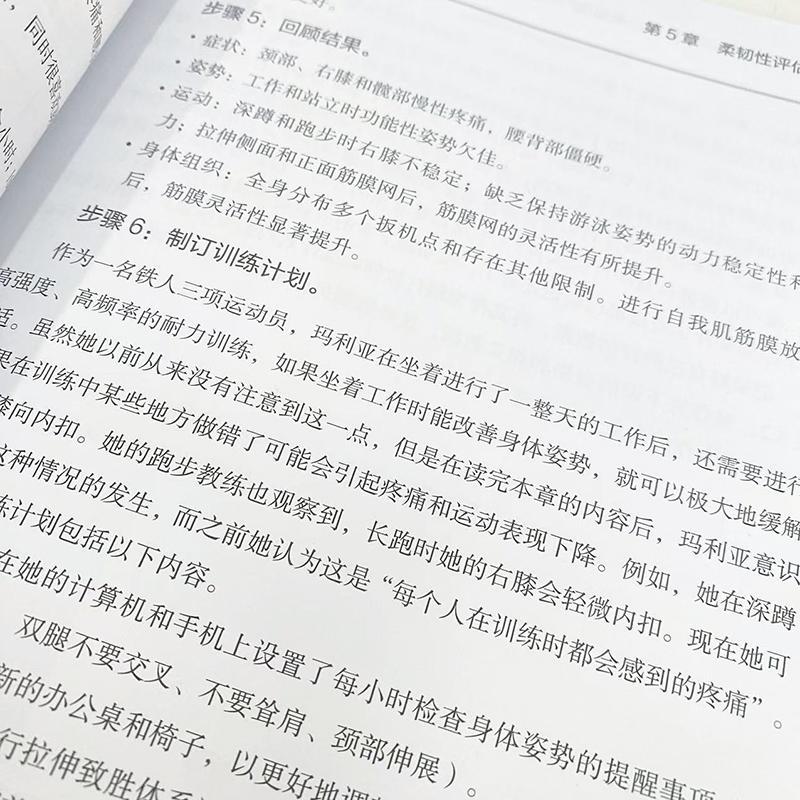 第 5 章 柔韧性评估
步骤 5：回顾结果。
· 症状：颈部、右膝和髋部慢性疼痛，腰背部僵硬。
· 姿势：工作和站立时功能性姿势欠佳。
· 运动：深蹲和跑步时右膝不稳定；缺乏保持游泳姿势的动力稳定性和
力；拉伸侧面和正面筋膜网后，筋膜网的灵活性有所提升。
· 身体组织：全身分布多个扳机点和存在其他限制。进行自我肌筋膜放
后，筋膜灵活性显著提升。
步骤 6：制订训练计划。
作为一名铁人三项运动员，玛利亚在坐着进行了一整天的工作后，还需要进行
高强度、高频率的耐力训练，如果坐着工作时能改善身体姿势，就可以极大地缓解
适。虽然她以前从来没有注意到这一点，但是在读完本章的内容后，玛利亚意识
果在训练中某些地方做错了可能会引起疼痛和运动表现下降。例如，她在深蹲
膝向内扣。她的跑步教练也观察到，长跑时她的右膝会轻微内扣。现在她可
这种情况的发生，而之前她认为这是“每个人在训练时都会感到的疼痛”。
练计划包括以下内容。
在她的计算机和手机上设置了每小时检查身体姿势的提醒事项
双腿不要交叉、不要耸肩、颈部伸展）。
新的办公桌和椅子，以更好地调
行拉伸致胜体系